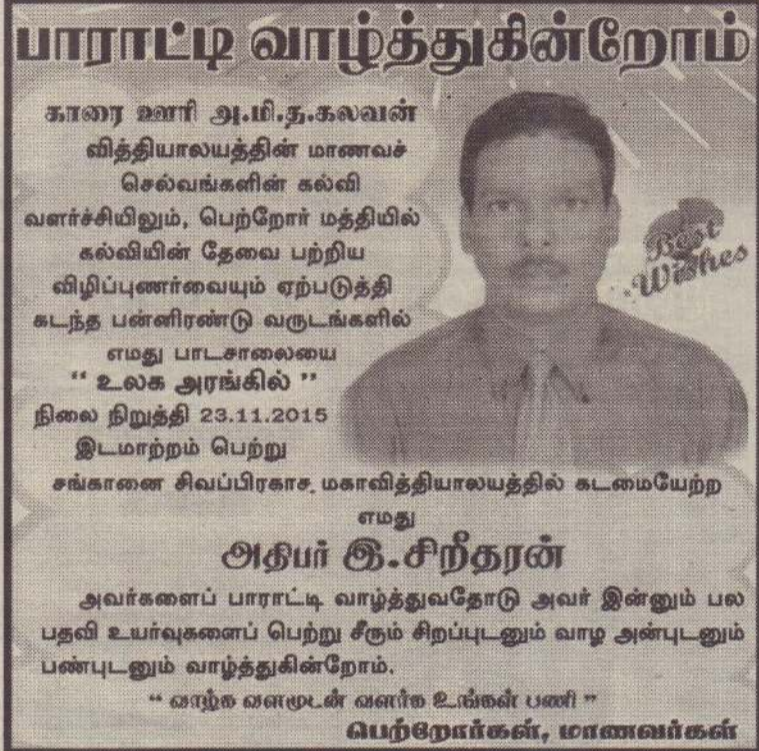 பாராட்டி வாழ்த்துகின்றோம்
காரை ஊரி அ.மி.த.கலவன்
வித்தியாலயத்தின் மாணவச்
செல்வங்களின் கல்வி
வளர்ச்சியிலும், பெற்றோர் மத்தியில்
கல்வியின் தேவை பற்றிய
விழிப்புணர்வையும் ஏற்படுத்தி
கடந்த பன்னிரண்டு வருடங்களில்
எமது பாடசாலையை
“ உலக அரங்கில் ”
நிலை நிறுத்தி 23.11.2015
இடமாற்றம் பெற்று
சங்கானை சிவப்பிரகாச மகாவித்தியாலயத்தில் கடமையேற்ற
எமது
அதிபர் இ.சிறீதரன்
அவர்களைப் பாராட்டி வாழ்த்துவதோடு அவர் இன்னும் பல
பதவி உயர்வுகளைப் பெற்று சீரும் சிறப்புடனும் வாழ அன்புடனும்
பண்புடனும் வாழ்த்துகின்றோம்.
“ வாழ்க வளமுடன் வளர்க உங்கள் பணி ”
பெற்றோர்கள், மாணவர்கள்
Best
Wishes